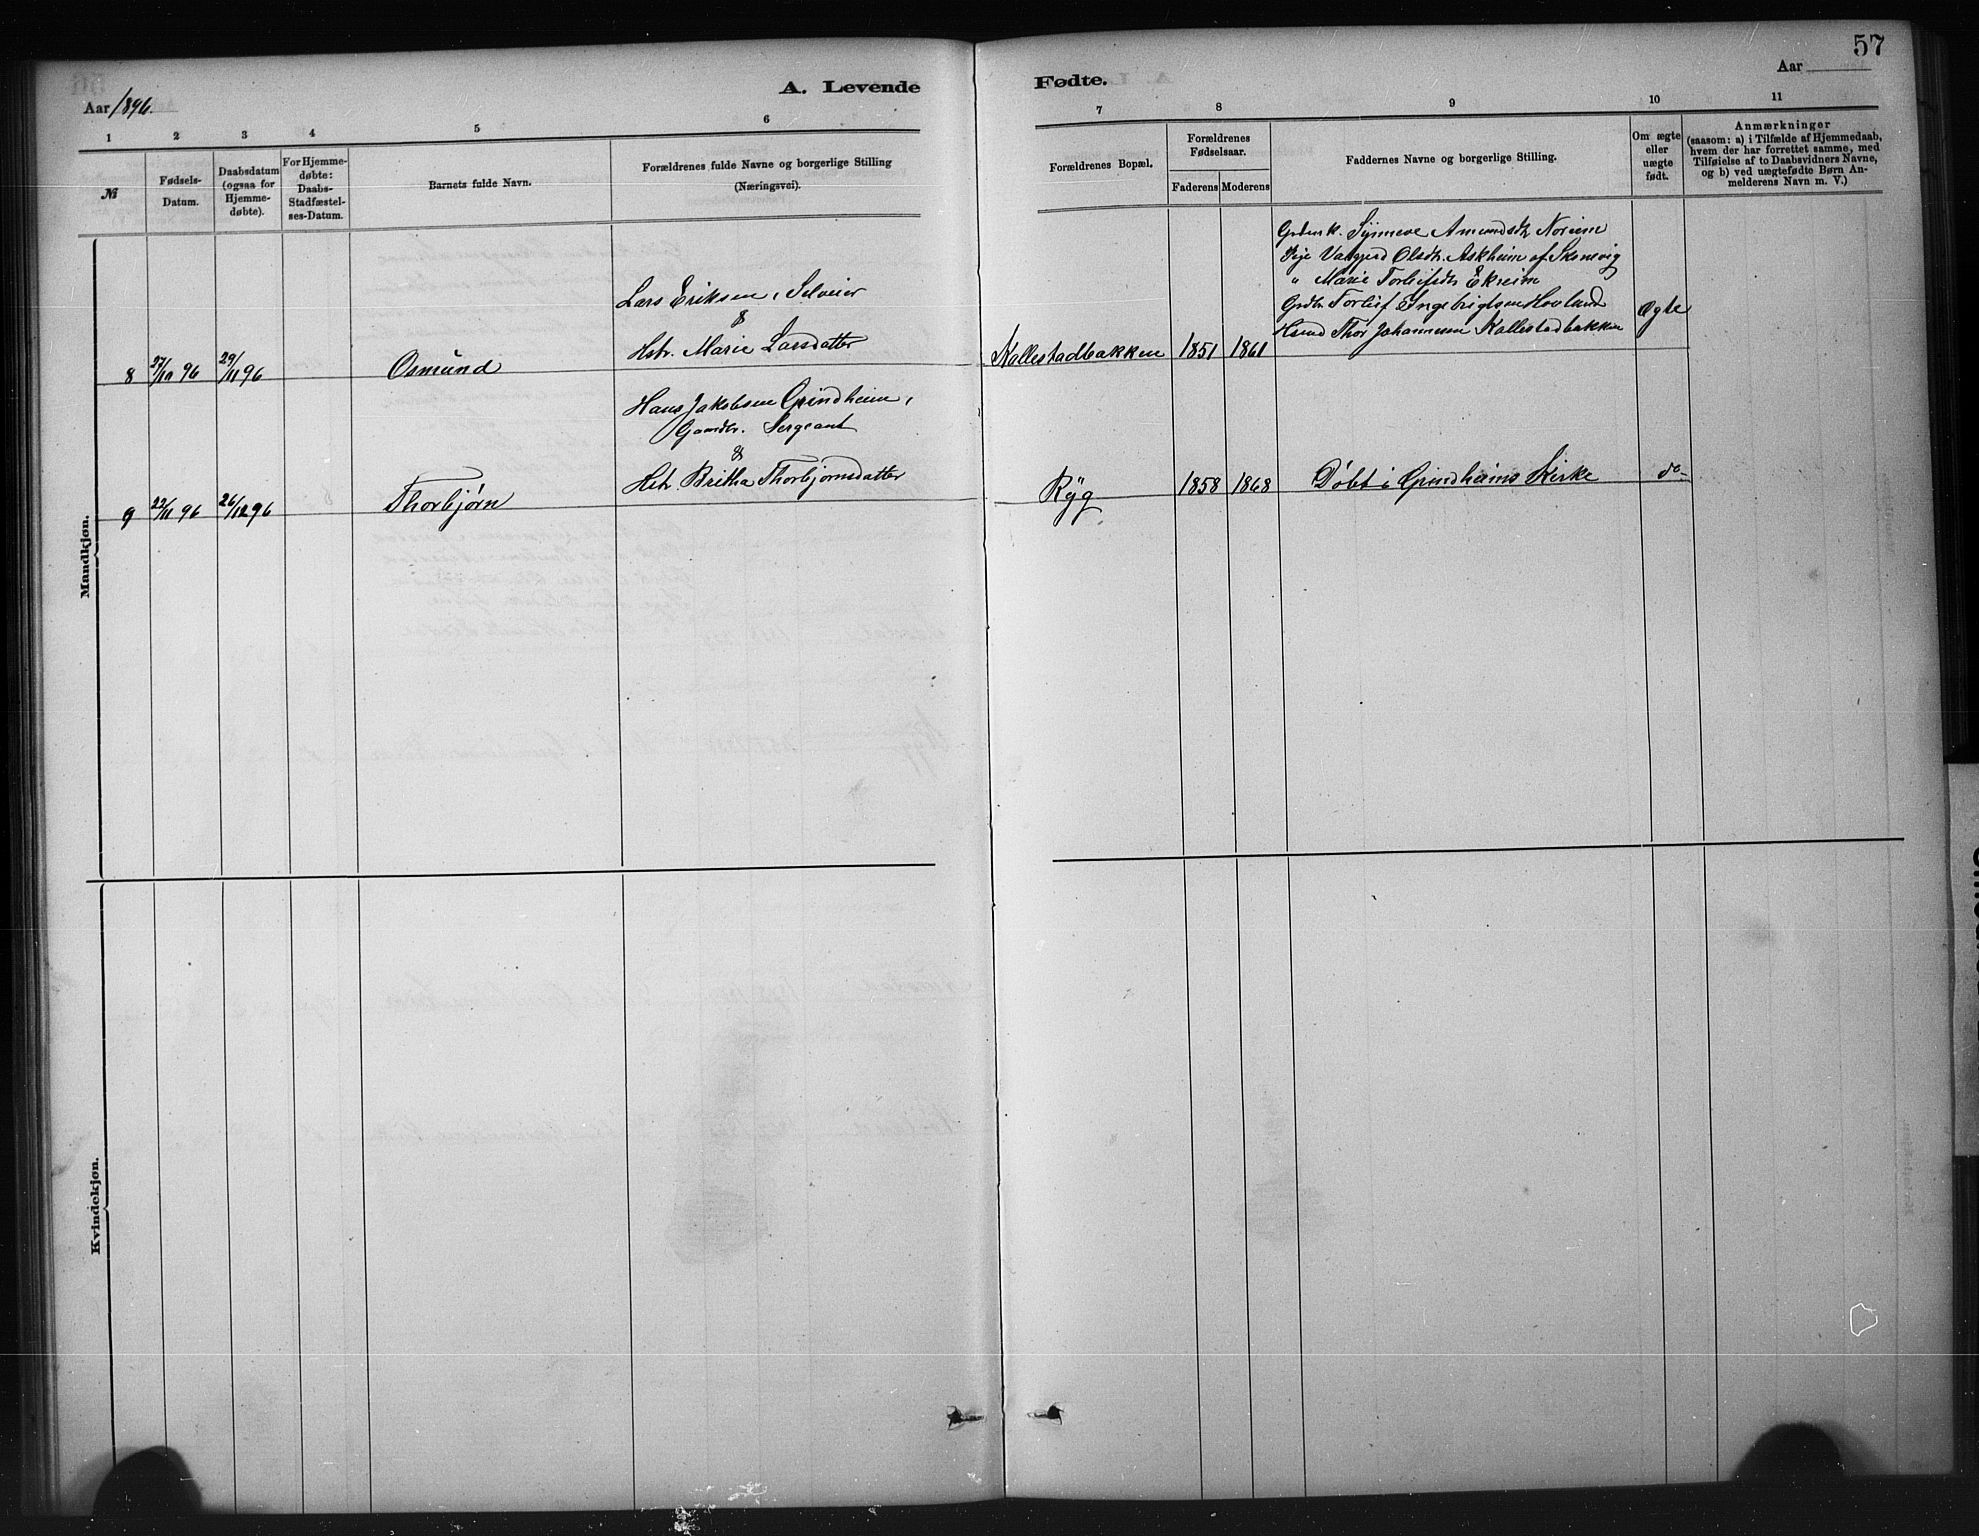 57
A. Levende
Fødte.
Aar
Aar 1896.
1 2 3 4 5 6
7 8 9 10 11
№
Fødsels-
Datum.
Daabsdatum
(ogsaa for
Hjemme-
døbte).
For Hjemme-
døbte:
Daabs-
Stadfæstel-
ses-Datum.
Barnets fulde Navn.
Forældrenes fulde Navne og borgerlige Stilling
(Næringsvei).
Forældrenes Bopæl.
Forældrenes
Fødselsaar.
Faderens Moderens
Faddernes Navne og borgerlige Stilling.
Om ægte
eller
uægte
født.
Anmærkninger
(saasom: a) i Tilfælde af Hjemmedaab,
hvem der har forrettet samme, med
Tilføielse af to Daabsvidners Navne,
og b) ved uægtefødte Børn An-
melderens Navn m. V.)
Mandkjøn.
Lars Eriksen, Selveier
&
Hstr. Marie Larsdatter
8 27/10 96 29/11 96 Osmund
Kallestadbakken 1851 1861
Synneve Amundsdtr Noreim
Pige Valgjerd Olsdtr. Askheim af Skonevig
" Marie Torleifsdtr Ekreim
Grdbr. Torleif Ingebrigtsen Hovland
Hsmd Thor Johannesen Kallestadbakken
Ægte
Hans Jakobsen Grindheim,
Gaardbr. Sergeant
&
Hstr. Britha Thorbjørnsdatter
9 22/11 96 26/12 96 Thorbjørn
Ryg 1858 1868 Døbt i Grindheims Kirke do-
Kvindekjøn.